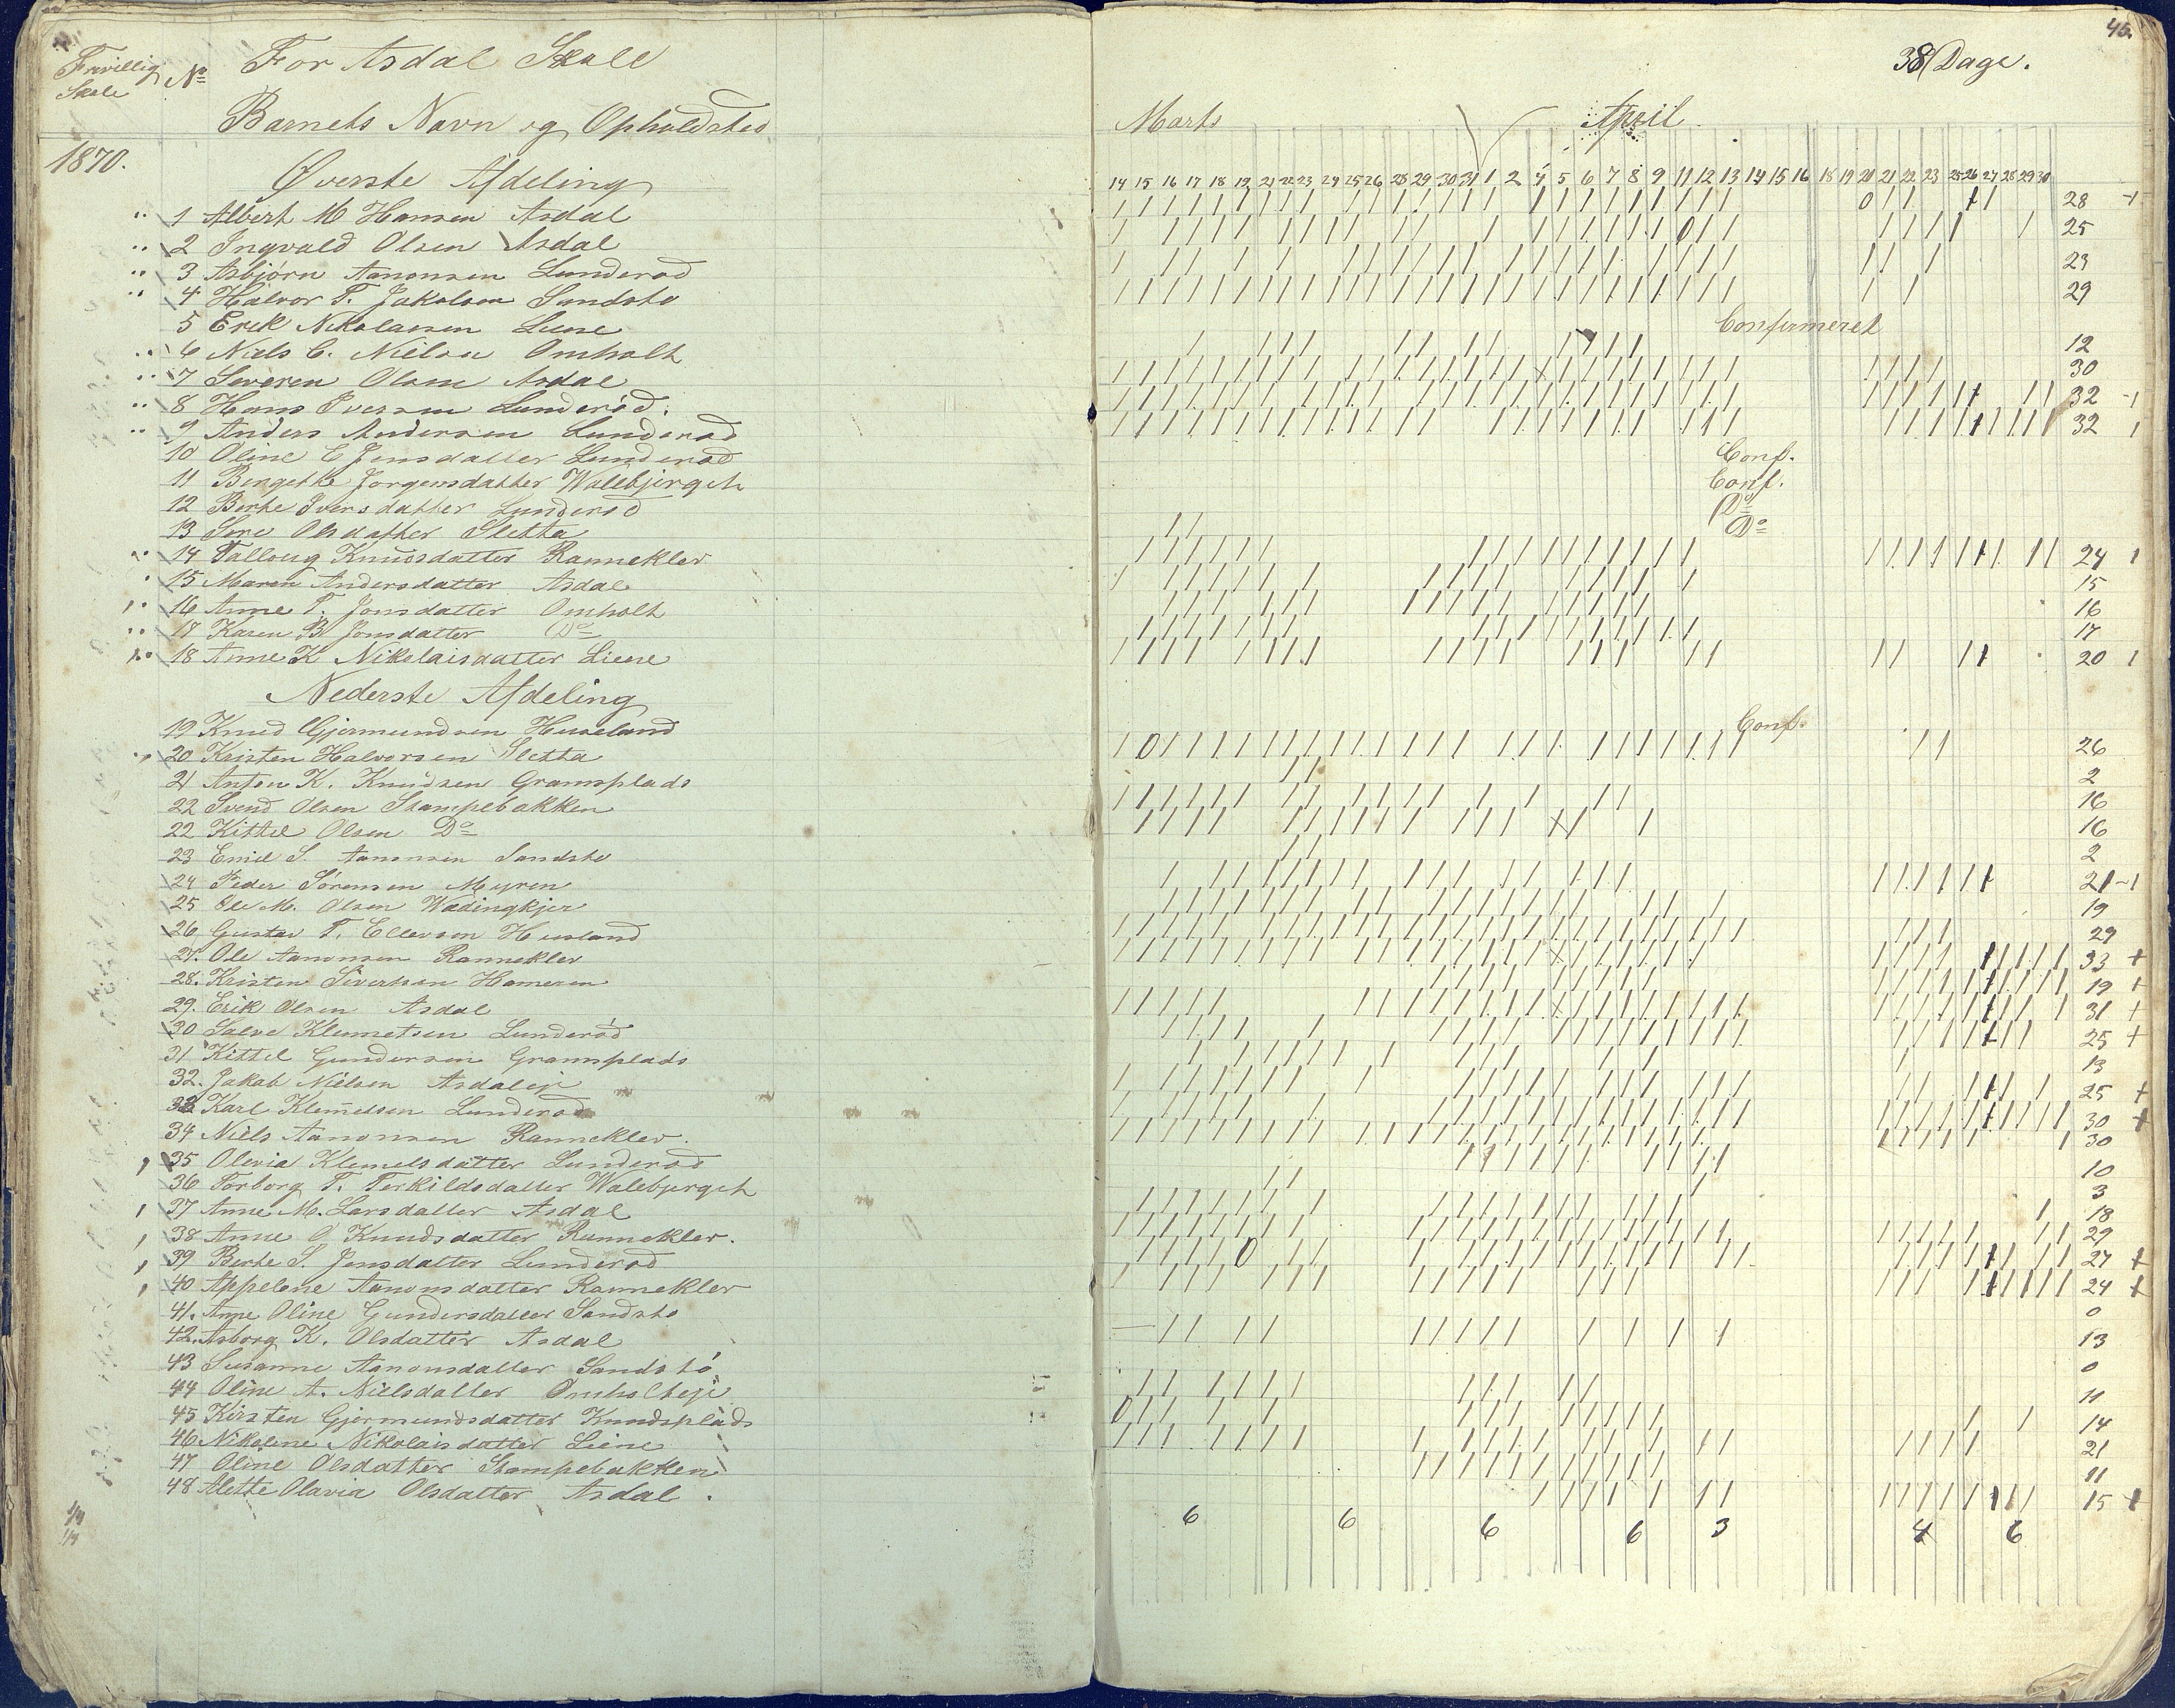 Frivillig Skole
No
For Asdal Skole
Barnets Navn og Opholdsted
1870.
Øverste Afdeling
1 Albert M Hansen Asdal
2 Ingvald Olsen Asdal
3 Asbjørn Aanonsen Lunderød
4 Halvor T. Jakobsen Sandstø
5 Erik Nikolaisen Liene
6 Niels C. Nielsen Omholt
7 Severen Olsen Asdal
8 Hans Iversen Lunderød.
9 Anders Andersen Lunderød
10 Oline E Jensdatter Lunderød
11 Bengethe Jørgensdatter Walebjerget
12 Berthe Iversdatter Lunderød
13 Sere Olsdatter Sletta
14 Talloug Knudsdatter Ranneklev
15 Maren Andersdatter Asdal
16 Anne T. Jonsdatter Omholt
17 Karen B Jonsdatter Do
18 Anne K Nikolaisdatter Liene
Nederste Afdeling
19 Knud Gjermundsen Huseland
20 Kristen Halvorsen Sletta
21 Anton K. Knudsen Gramsplads
22 Svend Olsen Stampebakken
22 Kittel Olsen Do
23 Emil S. Aanonsen Sandstø
24 Peder Sørensen Myren
25 Ole M. Olsen Wødingkjer
26 Gustav T. Ellevsen Husland
27. Ole Aanonsen Ranneklev
28. Kristen Sivertsen Hameren
29. Erik Olsen Asdal
30 Salve Klemetsen Lunderød
31 Kittel Gundersen Gramsplads
32. Jakob Nielsen Asdaleje
33 Karl Klemetsen Lunderød
34 Niels Aanonsen Ranneklev.
35 Olevia Klemetsdatter Lunderød
36 Torborg T. Terkildsdatter Walebjerget
37 Anne M. Larsdatter Asdal
38 Anne O Knudsdatter Ranneklev.
39 Berte S. Jensdatter Lunderød
40 Appelone Aanonsdatter Ranneklev
41. Anne Oline Gundersdatter Sandstø
42. Asborg K. Olsdatter Asdal
43 Susanne Aanonsdatter Sandstø
44 Oline A. Nielsdatter Omholteje
45 Kirsten Gjermundsdatter Knudsplads
46 Nikoline Nikolaisdatter Liene
47 Oline Olsdatter Stampebakken
48 Alette Olavia Olsdatter Asdal.
46.
38 Dage.
Marts April
14 15 16 17 18 19 21 22 23 24 25 26 28 29 30 31 1 2 4 5 6 7 8 9 11 12 13 14 15 16 18 19 20 21 22 23 25 26 27 28 29 30
28
25
23
29
Confirmeret
12
30
32
32
Conf.
Conf.
Do
Do
24
15
16
17
20
Conf.
26
2
16
16
2
21
19
29
33 +
19 +
31 +
25 +
13
25 +
30 +
30
10
3
18
29
27 +
24 +
0
13
0
11
14
21
11
15 +
6 6 6 6 3 4 6